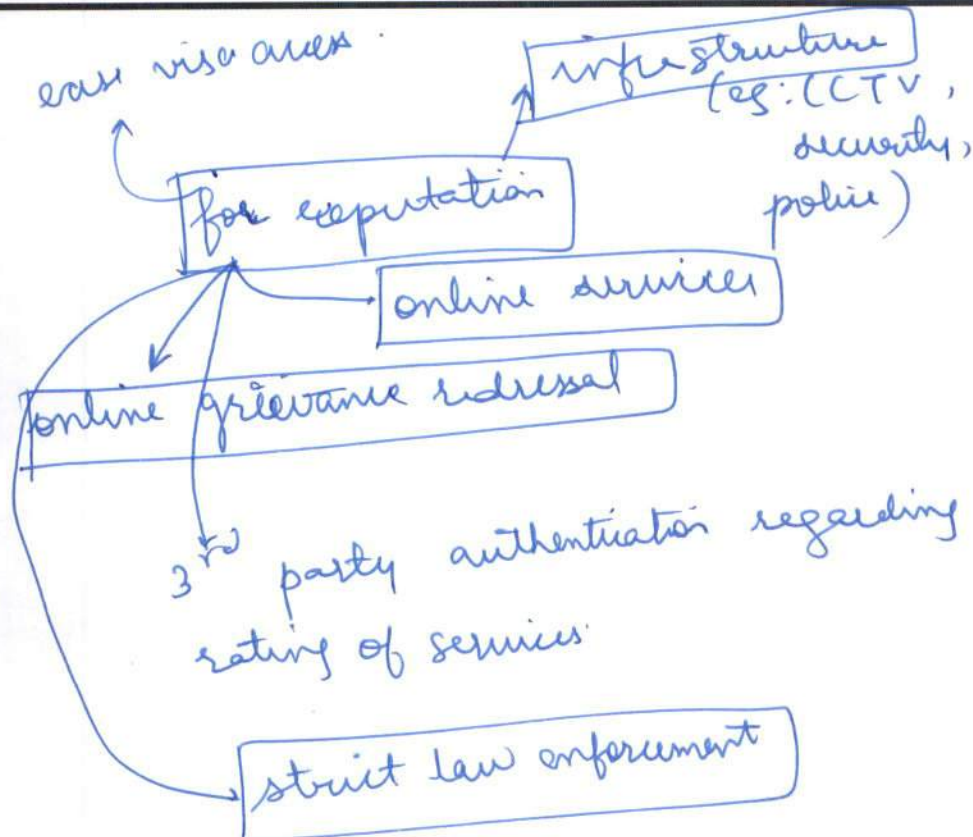 ease visa access.
infrastructure
(eg: CCTV,
security,
police)
for reputation
online services
online grievance redressal
3rd party authentication regarding
rating of services
strict law enforcement